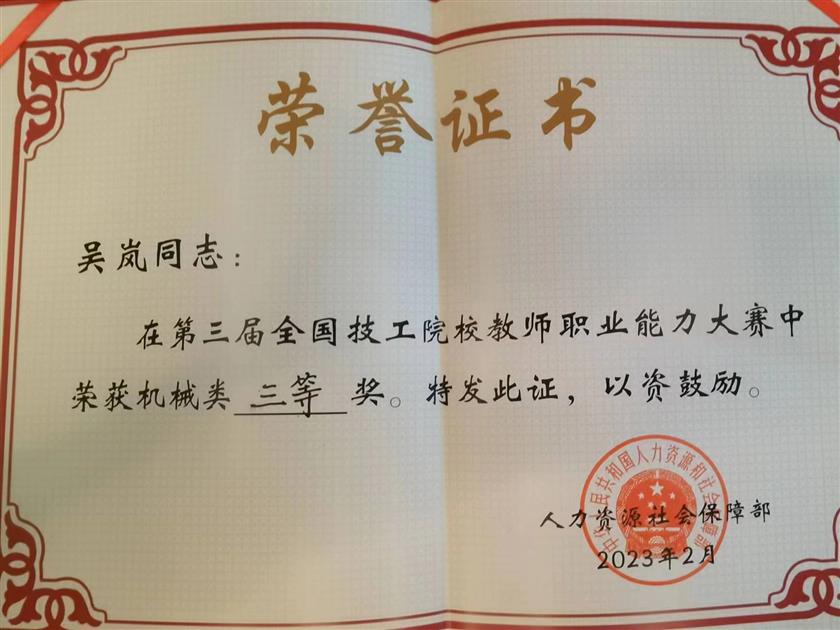 荣誉证书
吴岚同志：
在第三届全国技工院校教师职业能力大赛中
荣获机械类 三等 奖。特发此证，以资鼓励。
中华人民共和国人力资源和社会保障部
人力资源社会保障部
2023年2月